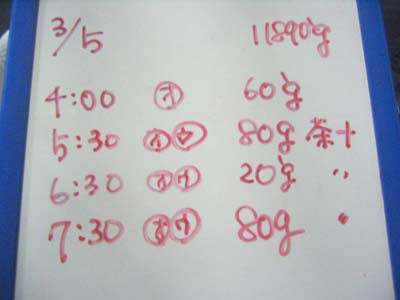 3/5 11890g
4:00 オ 60g
5:30 オ ウ 80g 茶+
6:30 オ ウ 20g 〃
7:30 オ ウ 80g 〃